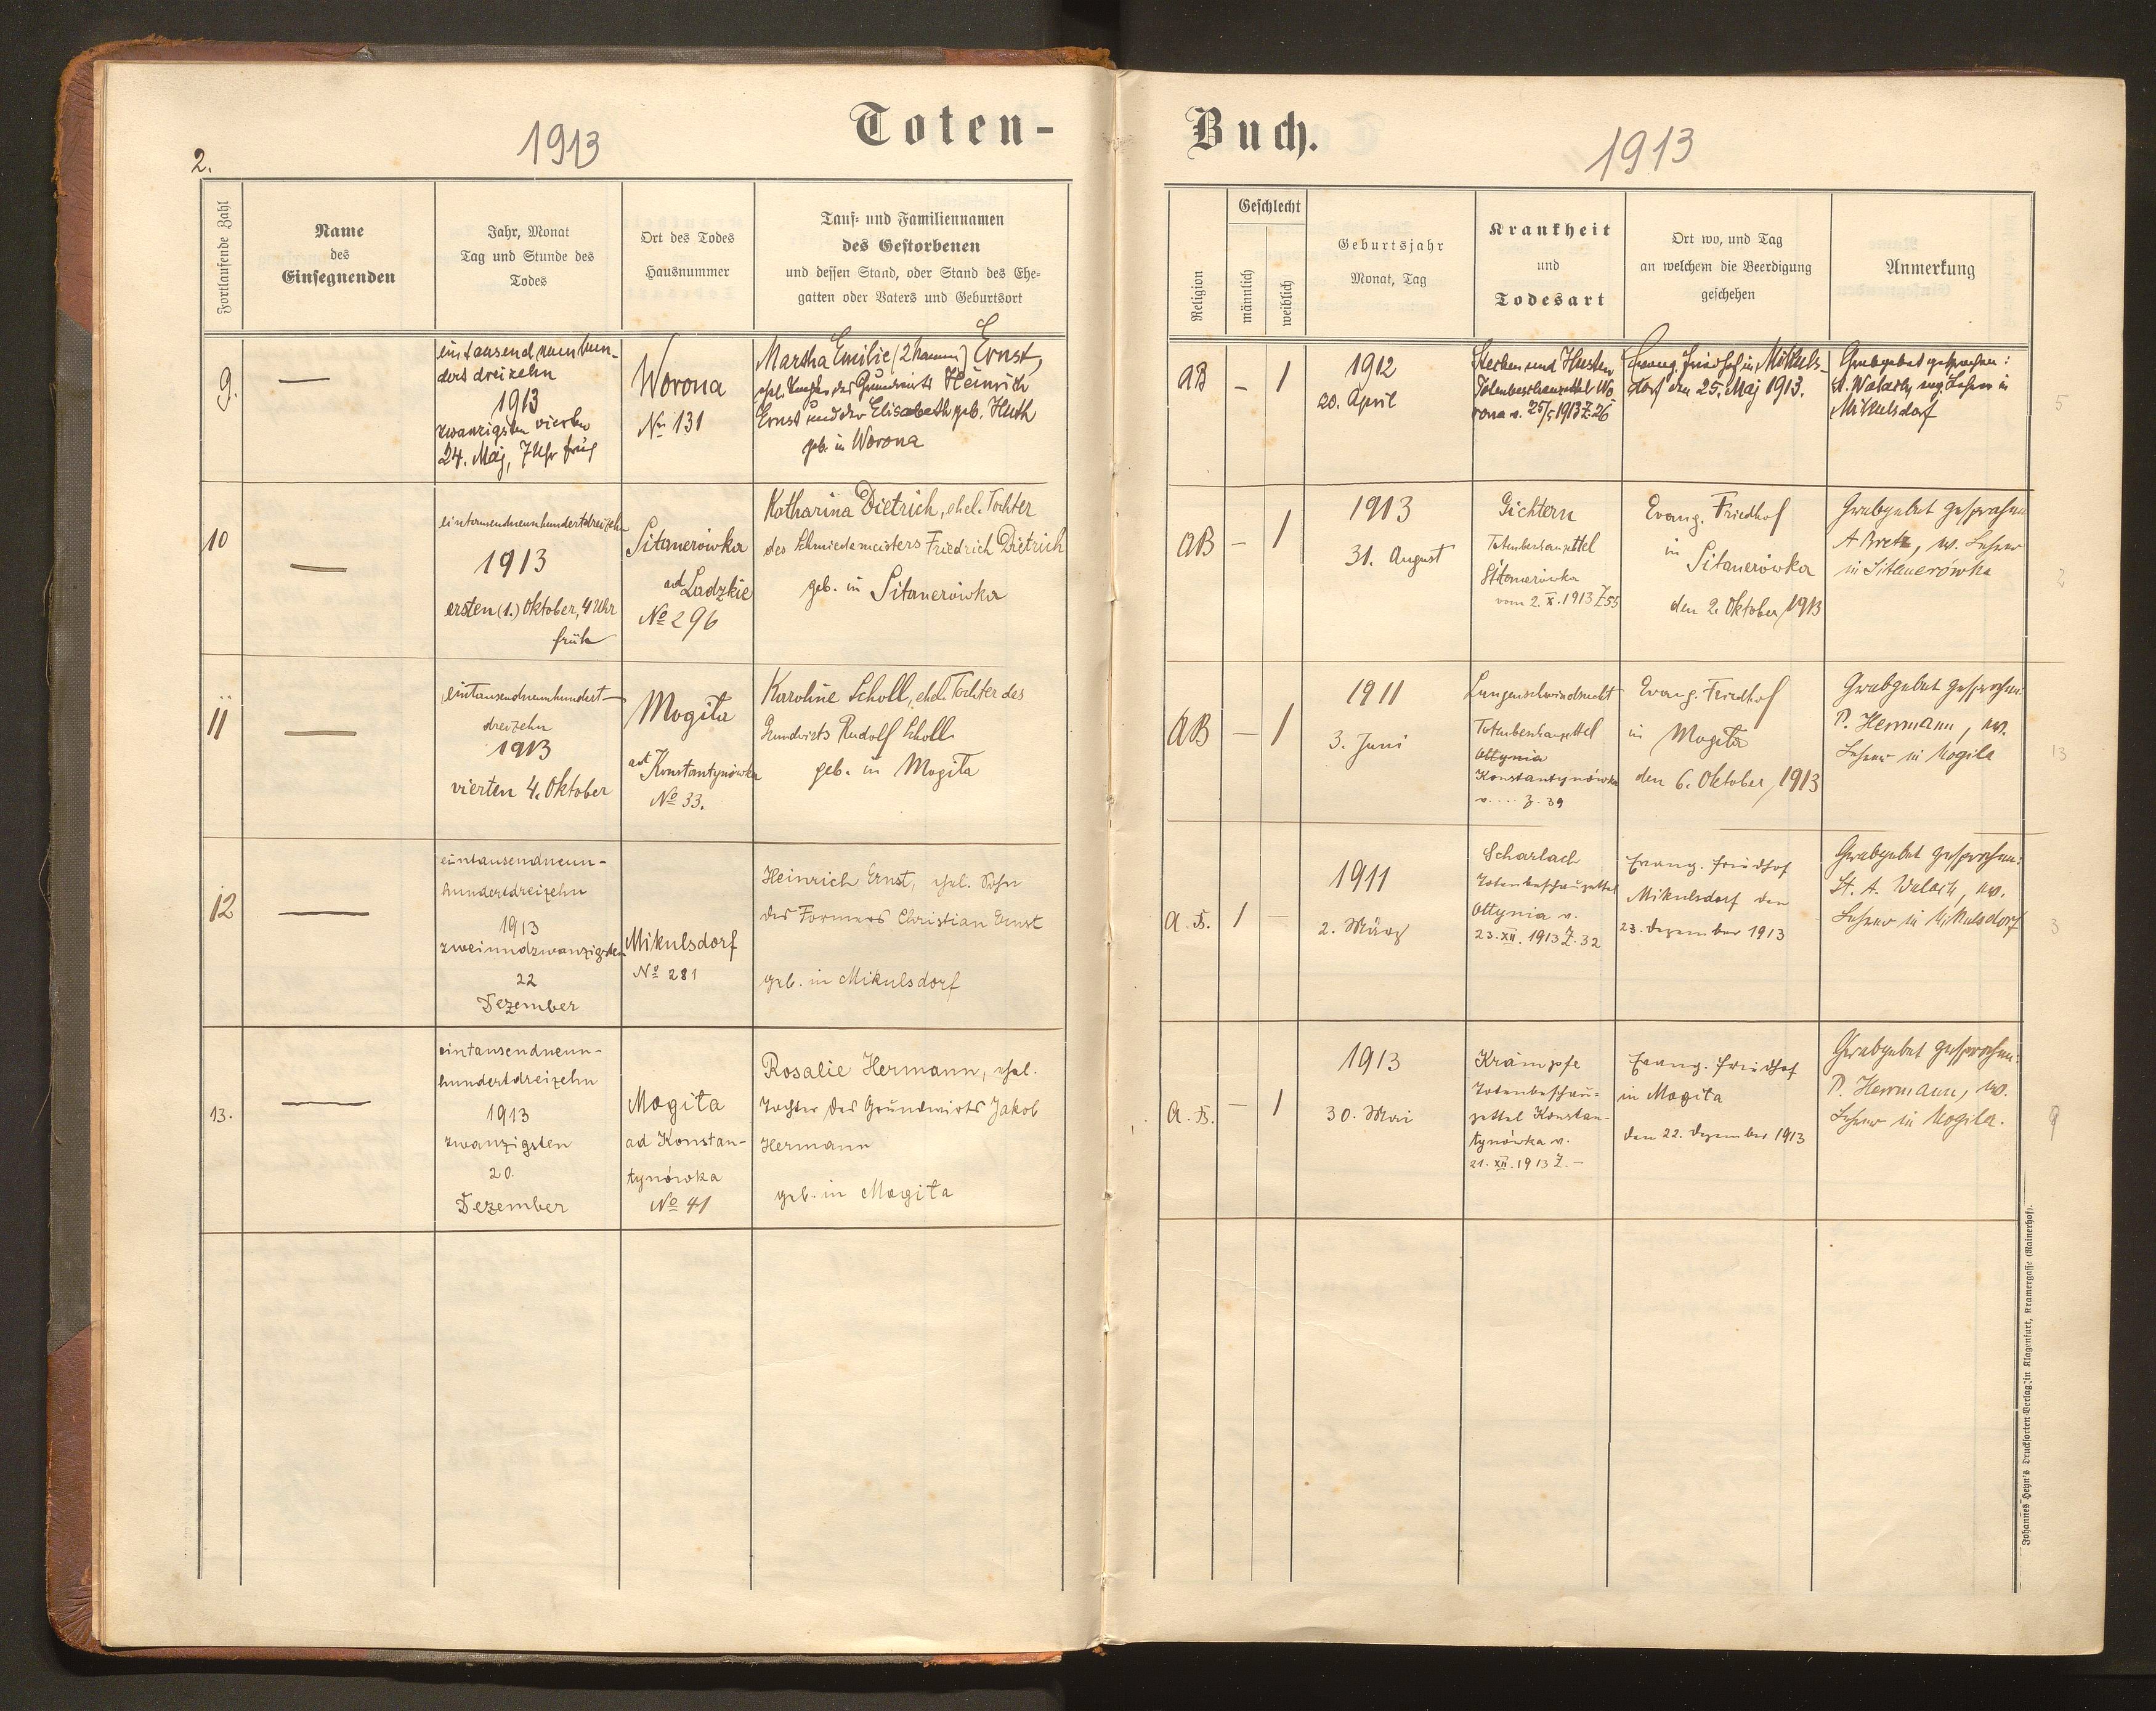 2.
1913
Toten-
Fortlaufende Zahl
Name
des
Einsegnenden
Jahr, Monat
Tag und Stunde des
Todes
Ort des Todes
Hausnummer
Tauf- und Familiennamen
des Gestorbenen
und dessen Stand, oder Stand des Ehe-
gatten oder Vaters und Geburtsort
9.
—
eintausendneunhun-
dert dreizehn
1913
zwanzigsten vierten
24. Maj, 7 Uhr früh
Worona
No 131
Martha Emilie (2 Namen) Ernst,
ehel. Tochter des Grundwirts Heinrich
Ernst und der Elisabeth geb. Huth
geb. in Worona
10
—
eintausendneunhundertdreizehn
1913
ersten (1.) Oktober, 4 Uhr
früh
Sitauerówka
ad Ladzkie
No 296
Katharina Dietrich, ehel. Tochter
des Schmiedemeisters Friedrich Dietrich
geb. in Sitauerówka
11
—
eintausendneunhundert-
dreizehn
1913
vierten 4. Oktober
Mogiła
ad Konstantynówka
No 33.
Karoline Scholl, ehel. Tochter des
Grundwirts Rudolf Scholl
geb. in Mogiła
12
—
eintausendneun-
hundertdreizehn
1913
zweiundzwanzigsten
22
Dezember
Mikulsdorf
No 281
Heinrich Ernst, ehel. Sohn
des Formers Christian Ernst
geb. in Mikulsdorf
13.
—
eintausendneun-
hundertdreizehn
1913
zwanzigsten
20.
Dezember
Mogiła
ad Konstan-
tynówka
No 41
Rosalie Hermann, ehel.
Tochter des Grundwirts Jakob
Hermann
geb. in Mogiła
Buch.
1913
Religion
Geschlecht
männlich
weiblich
Geburtsjahr
Monat, Tag
Krankheit
und
Todesart
Ort wo, und Tag
an welchem die Beerdigung
geschehen
Anmerkung
AB
—
1
1912
20. April
Stecken und Husten
Totenbeschauzettel Wo-
rona v. 25/5 1913 Z. 26
Evang. Friedhof in Mikuls-
dorf den 25. Maj 1913.
Grabgebet gesprochen:
A. Walach, ev. Lehrer in
Mikulsdorf
5
AB
—
1
1913
31. August
Gichtern
Totenbeschauzettel
Sitauerówka
vom 2. X. 1913 Z 55
Evang. Friedhof
in
Sitauerówka
den 2. Oktober 1913
Grabgebet gesprochen
A Bretz, ev. Lehrer
in Sitauerówka
2
AB
—
1
1911
3. Juni
Lungenschwindsucht
Totenbeschauzettel
Ottynia
Konstantynówka
v. .... Z. 39
Evang. Friedhof
in Mogiła
den 6. Oktober 1913
Grabgebet gesprochen:
P. Hermann, ev.
Lehrer in Mogila
13
A.B.
1
—
1911
2. März
Scharlach
Totenbeschauzettel
Ottynia v.
23. XII. 1913 Z. 32
Evang. Friedhof
Mikulsdorf den
23. Dezember 1913
Grabgebet gesprochen:
St. A. Walach, ev.
Lehrer in Mikulsdorf
3
A.B.
—
1
1913
30. Mai
Krämpfe
Totenbeschau-
zettel Konstan-
tynówka v.
21. XII. 1913 Z. —
Evang. Friedhof
in Mogiła
den 22. Dezember 1913
Grabgebet gesprochen:
P. Hermann, ev.
Lehrer in Mogila.
9
Johannes Heyn's Drucksorten Verlag in Klagenfurt, Kramergasse (Rainerhof).